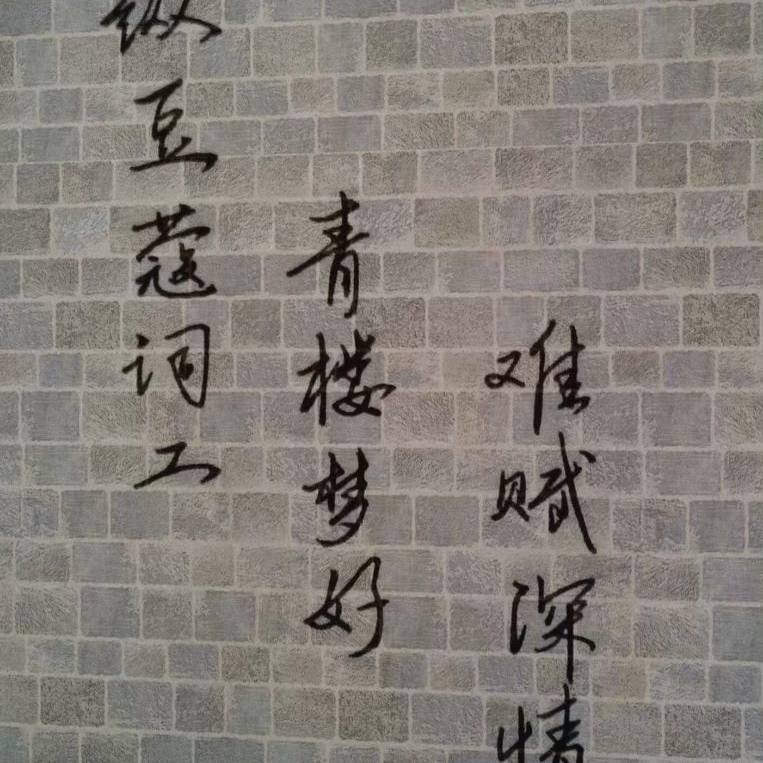 纵豆蔻词工
青楼梦好
难赋深情